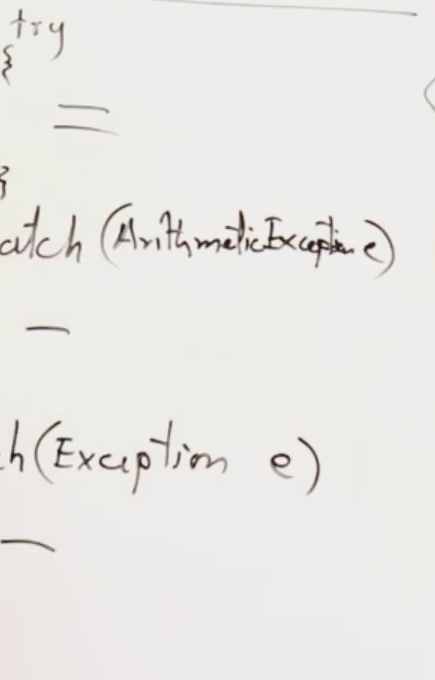 try
{
}
atch (ArithmeticException e)
h (Exception e)